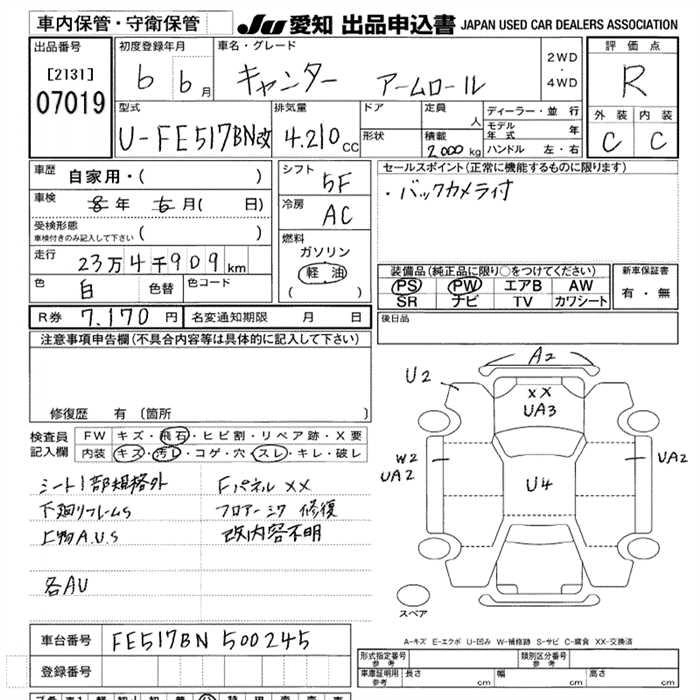 車内保管・守衛保管 JU 愛知 出品申込書 JAPAN USED CAR DEALERS ASSOCIATION
出品番号 [2131] 07019
初度登録年月 6 6月
車名・グレード キャンター アームロール
2WD・4WD
評価点 R
外装 内装
C C
型式 U-FE517BN改
排気量 4.210cc
ドア
形状
定員 人
積載 2000kg
ディーラー・並行
モデル年式 年
ハンドル 左・右
車歴 自家用・( )
車検 8年 5月( 日)
受検形態
車検付きのみ記入して下さい ( )
走行 23万4千909km
色 白 色替 色コード
シフト 5F
冷房 AC
燃料
ガソリン
軽油
( )
セールスポイント(正常に機能するものに限ります)
・バックカメラ付
装備品(純正品に限り○をつけてください)
PS PW エアB AW
SR ナビ TV カワシート
新車保証書
有・無
R券 7.170円 名変通知期限 月 日
後日品
注意事項申告欄(不具合内容等は具体的に記入して下さい)
修復歴 有 〔箇所 〕
検査員記入欄
FW キズ・飛石・ヒビ割・リペア跡・X要
内装 キズ・汚レ・コゲ・穴・スレ・キレ・破レ
シート1部規格外 Fパネル XX
下廻リフレームS フロアージク 修復
上物A.U.S 改内容不明
各AU
A2
U2
XX
UA3
W2
UA2
U4
UA2
スペア
A-キズ E-エクボ U-凹み W-補修跡 S-サビ C-腐食 XX-交換済
車台番号 FE517BN 500245
登録番号
型式指定番号 参考 類別区分番号 参考
車庫証明用 参考 長さ cm 幅 cm 高さ cm